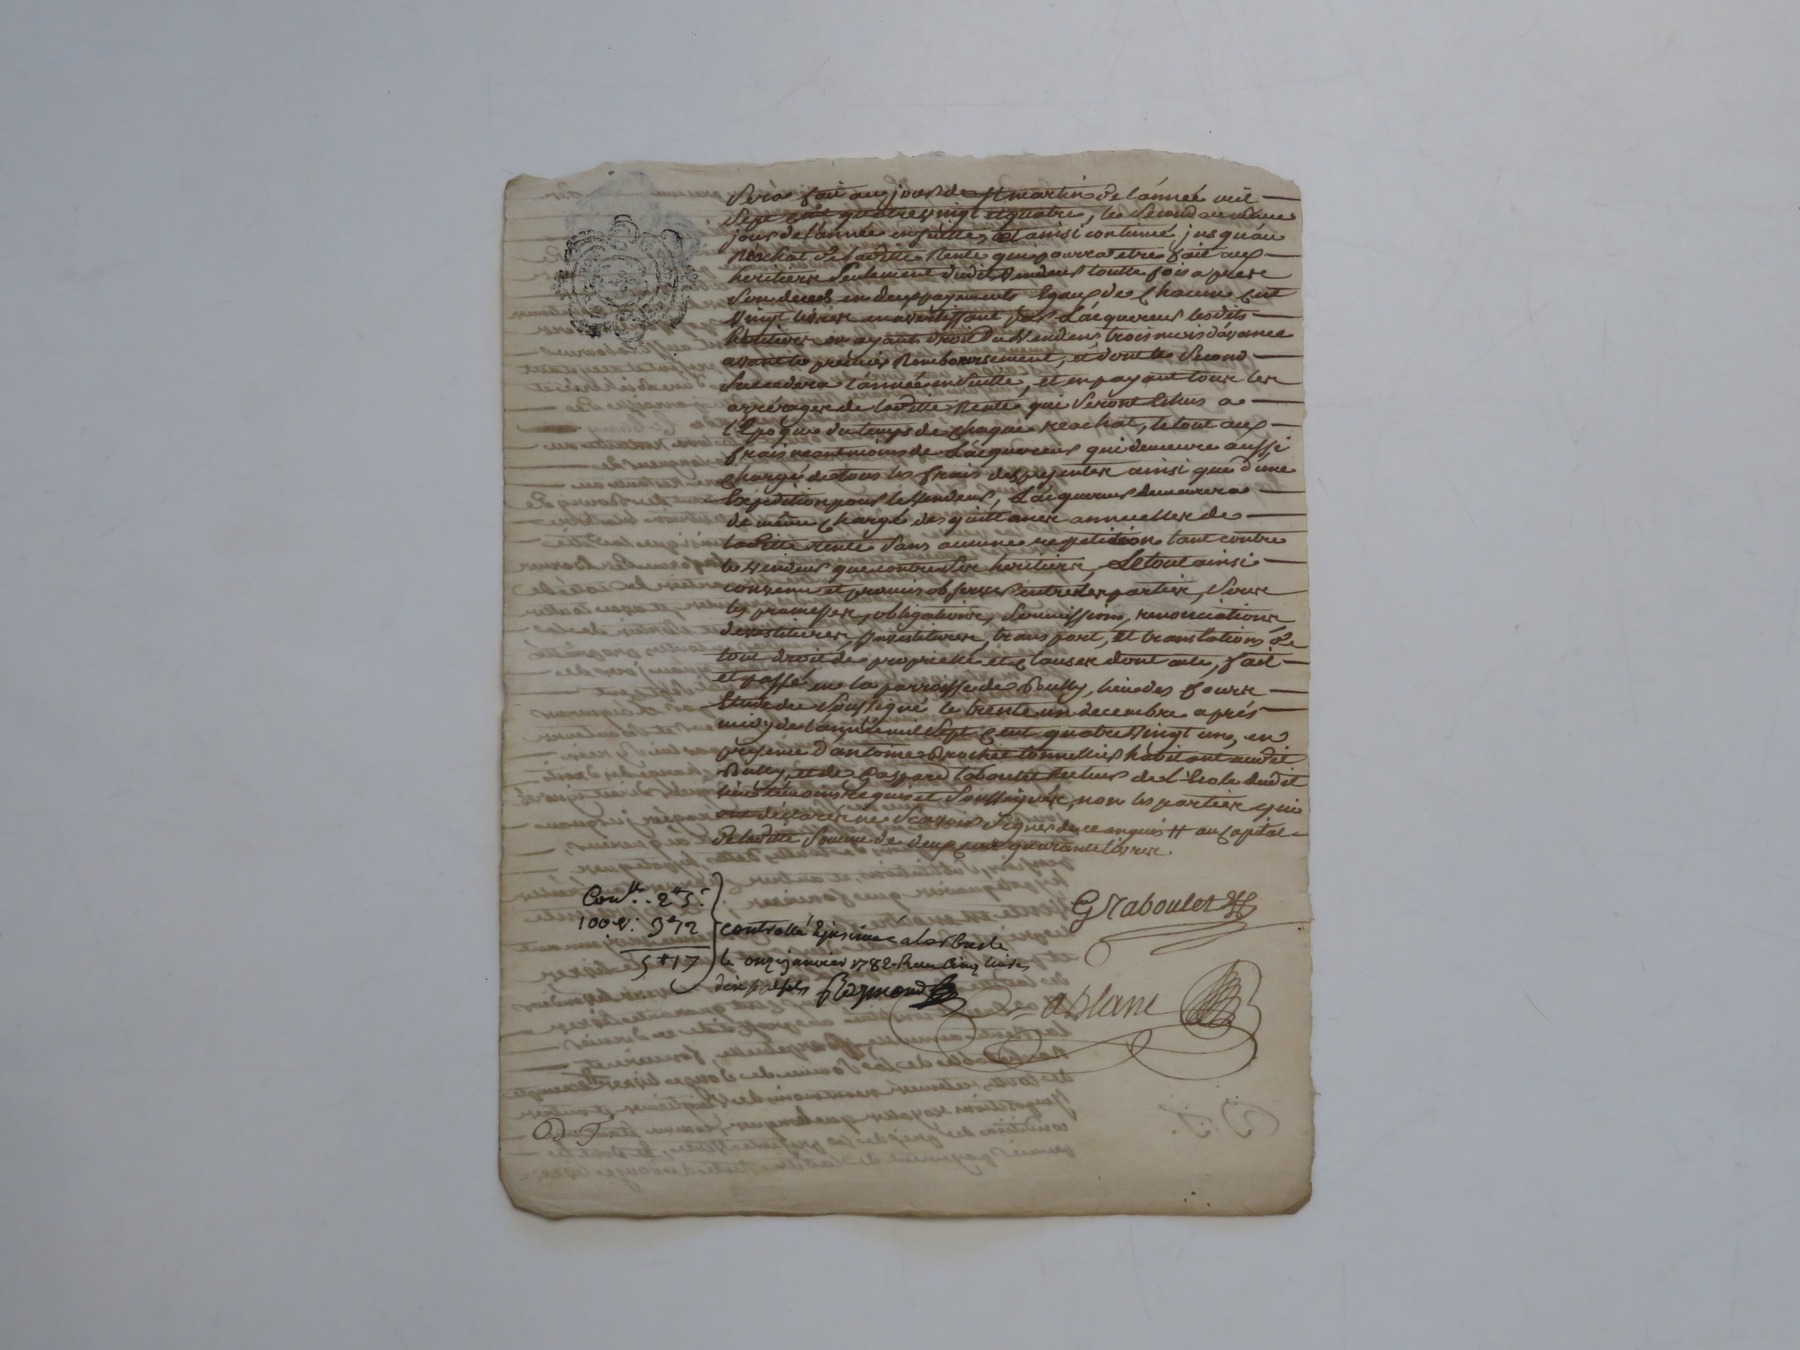 Sera fait au jour de st martin de l'année mil
Sept cent quatre vingt et quatre, le Second au même
jour de l'année ensuitte, et ainsi continué jusqu'au
Rachat de laditte Rente qui pourrat etre fait aux
heritiers Seulement dudit Vendeur toutte fois apres
Son deces en deux payements Egaux de Chacun Cent
Vingt livres en avertissant par L'acquereur lesdits
heritiers ou ayants droit du Vendeur trois mois d'avance
avant le premier Remboursement, et dont le Second
Succedera l'année ensuitte, et en payant tous les
arrérages de laditte Rente qui Seront Echus a
l'Epoque du temps de Chaque reachat, le tout aux
frais neantmoins de L'acquereur qui demeure aussi
Chargé de tous les frais des presentes ainsi que d'une
Expedition pour le Vendeur, L'acquereur demeurera
de même Chargé des quittances annuelles de
laditte Rente Sans aucune repetition tant contre
le Vendeur que contre Ses heritiers, Le tout ainsi
convenu et promis observer entre les parties, Sous
les promesses, obligations, Soumissions, renonciations
devestitures, Investitures, transport, et translations de
tout droit de proprieté et Clauses dont acte, fait
et passé en la parroisse de Bully, lieu des fours
Etude du Soussigné le trente un decembre après
midy de l'année mil Sept Cent quatre Vingt un, en
presence d'antoine Brochet tonnellier habitant audit
Bully, et de Gaspard taboulet Recteur de l'Ecole dudit
lieu témoins Requis et Soussignés, non les parties qui
ont déclarés ne Scavoir Signer de ce enquis # au Capital
de laditte Somme de deux cent quarante livres.
G Taboulet
Conlle.. 2# 5s
100e: 3# 12
5# 17
Controllé Insinué a larbresle
le onze janvier 1782 Reçu Cinq livres
dix sept sols Raymond
aBlanc